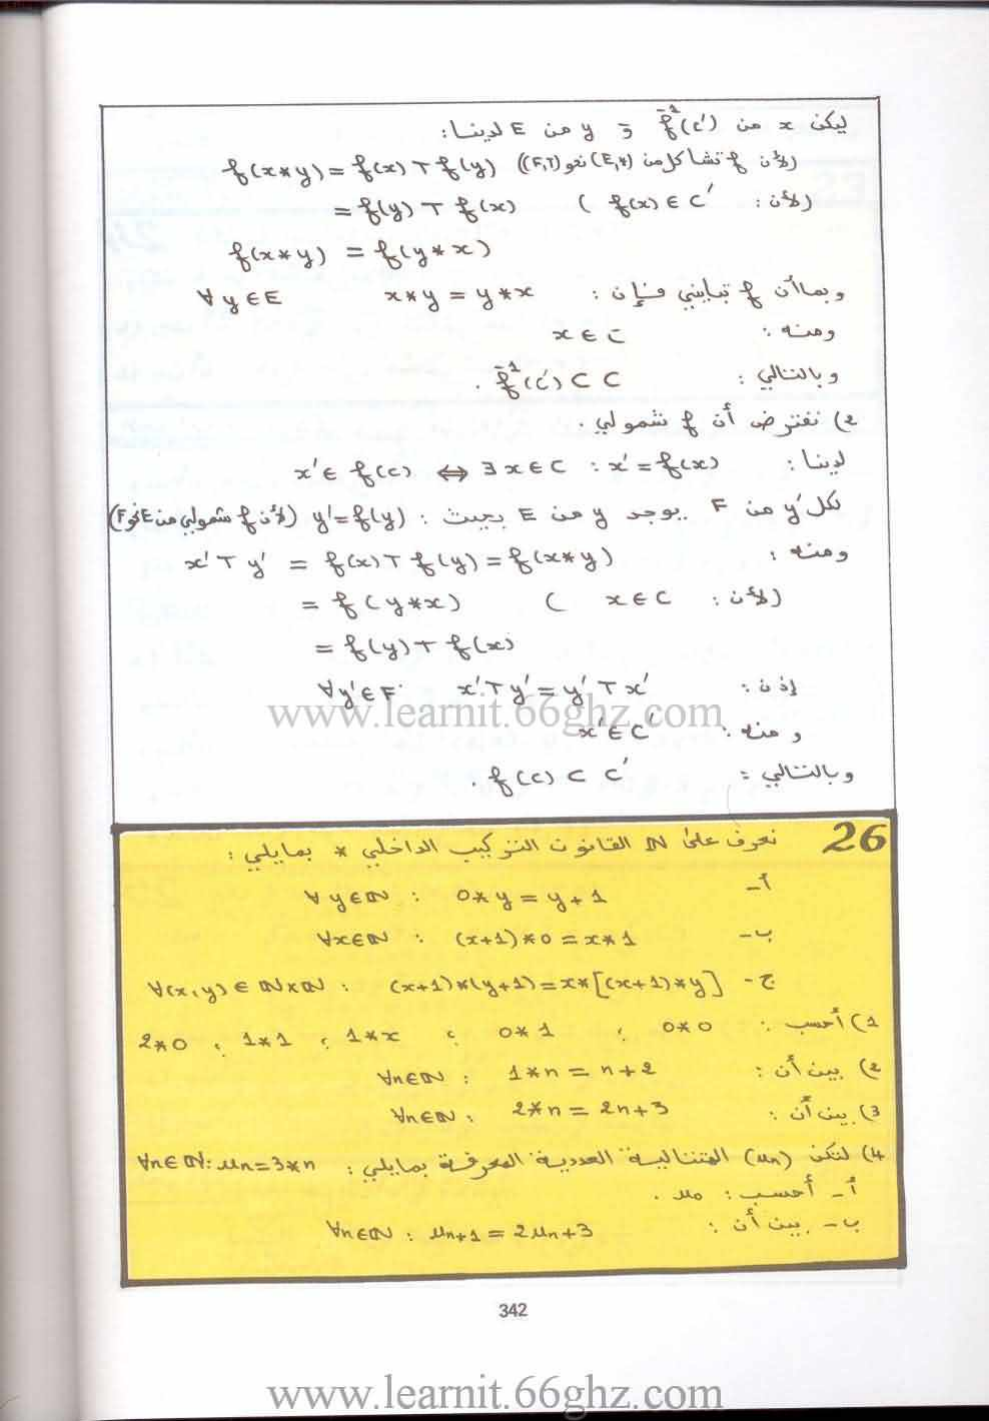 ليكن x من f⁻¹(C') و y من E لدينا:
f(x*y) = f(x) T f(y) (لأن f تشاكل من (E,*) نحو (F,T))
= f(y) T f(x) (لأن: f(x) ∈ C')
f(x*y) = f(y*x)
وبما أن f تبايني فإن: x*y = y*x ∀y∈E
ومنه: x ∈ C
وبالتالي: f⁻¹(C') ⊂ C .
2) نفترض أن f شمولي .
لدينا: x' ∈ f(C) ⇔ ∃x∈C : x' = f(x)
لكل y' من F يوجد y من E بحيث: y' = f(y) (لأن f شمولي من E نحو F)
ومنه: x' T y' = f(x) T f(y) = f(x*y)
= f(y*x) (لأن: x ∈ C)
= f(y) T f(x)
إذن: x' T y' = y' T x' ∀y'∈F
ومنه: x' ∈ C'
وبالتالي: f(C) ⊂ C' .
www.learnit.66ghz.com
26 نعرف على ℕ القانون التركيب الداخلي * بمايلي:
أ- ∀y∈ℕ : 0*y = y+1
ب- ∀x∈ℕ : (x+1)*0 = x*1
ج- ∀(x,y)∈ℕxℕ : (x+1)*(y+1) = x*[(x+1)*y]
1) أحسب: 0*0 ; 0*1 ; 1*x ; 1*1 ; 2*0
2) بين أن: ∀n∈ℕ : 1*n = n+2
3) بين أن: ∀n∈ℕ : 2*n = 2n+3
4) لتكن (un) المتتالية العددية المعرفة بمايلي: ∀n∈ℕ : un = 3*n
أ- أحسب: u0 .
ب- بين أن: ∀n∈ℕ : un+1 = 2un+3
342
www.learnit.66ghz.com